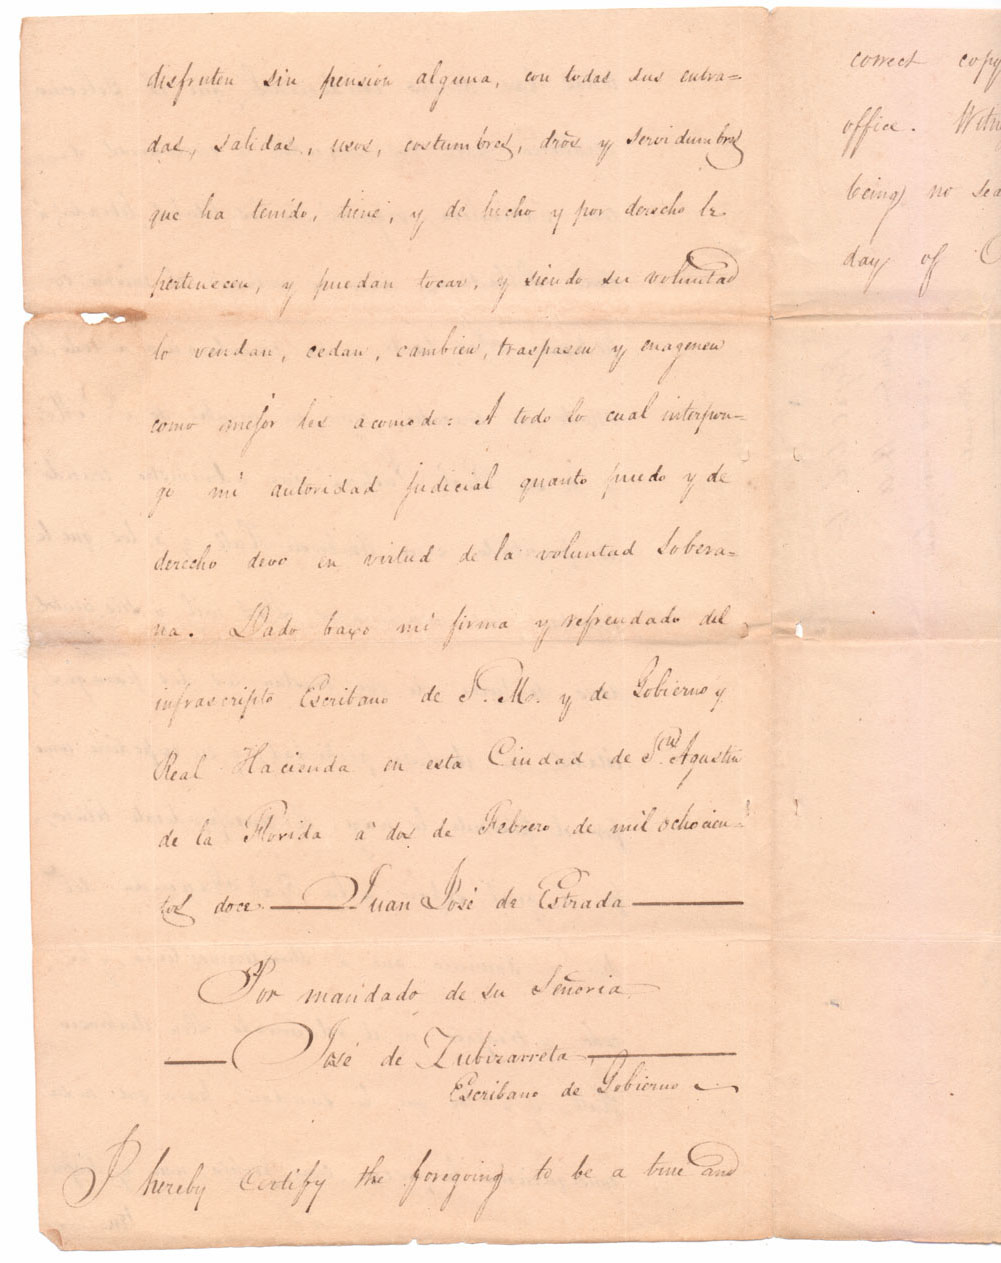 disfruten sin pension alguna, con todas sus entra=
das, salidas, usos, costumbres, dros y servidumbres
que ha tenido, tiene, y de hecho y por derecho le
pertenecen, y puedan tocar, y siendo su voluntad
lo vendan, cedan, cambien, traspasen y enagenen
como mejor les acomode: A todo lo cual interpon-
go mi autoridad judicial quanto puedo y de
derecho devo en virtud de la voluntad Sobera=
na. Dado baxo mi firma y refrendado del
infrascripto Escribano de S. M. y de Gobierno y
Real Hacienda en esta Ciudad de Sn. Agustin
de la Florida a dos de Febrero de mil ochocien-
tos doce. Juan José de Estrada
Por mandado de su Señoria
José de Zubizarreta
Escribano de Gobierno
I hereby Certify the foregoing to be a true and
correct copy
office.
being no
day of